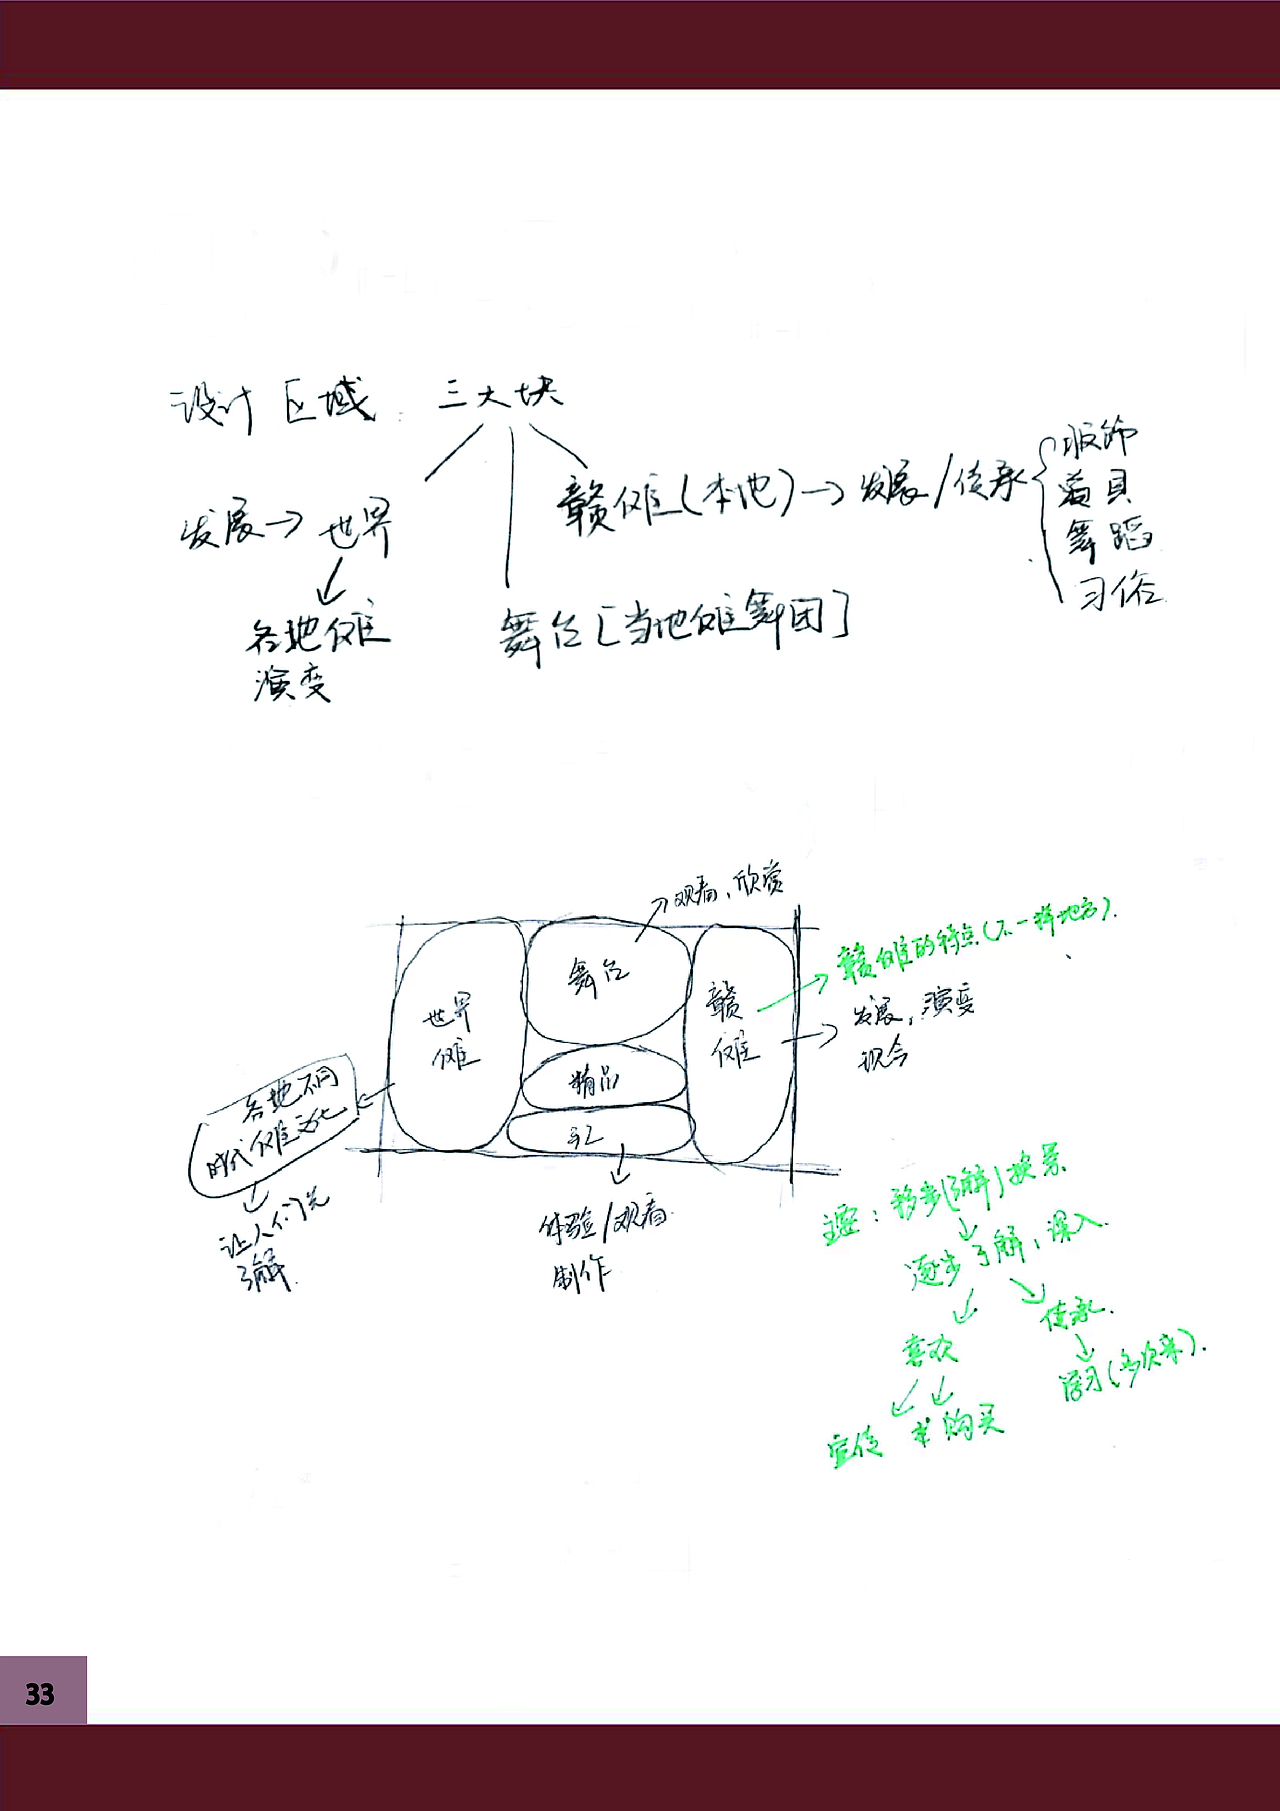 设计区域：三大块
发展→世界
各地傩
演变
赣傩(本地)→发展/传承
服饰
道具
舞蹈
习俗
舞台[当地傩舞团]
观看、欣赏
世界
傩
舞台
精品
手工
赣
傩
赣傩的特点(不一样地方).
发展，演变
现今
各地不同
时代傩文化
让人们先
了解.
体验/观看
制作
主要：移步(了解)换景
逐步了解，深入
喜欢
传承.
学习(多次来).
宣传 购买
33